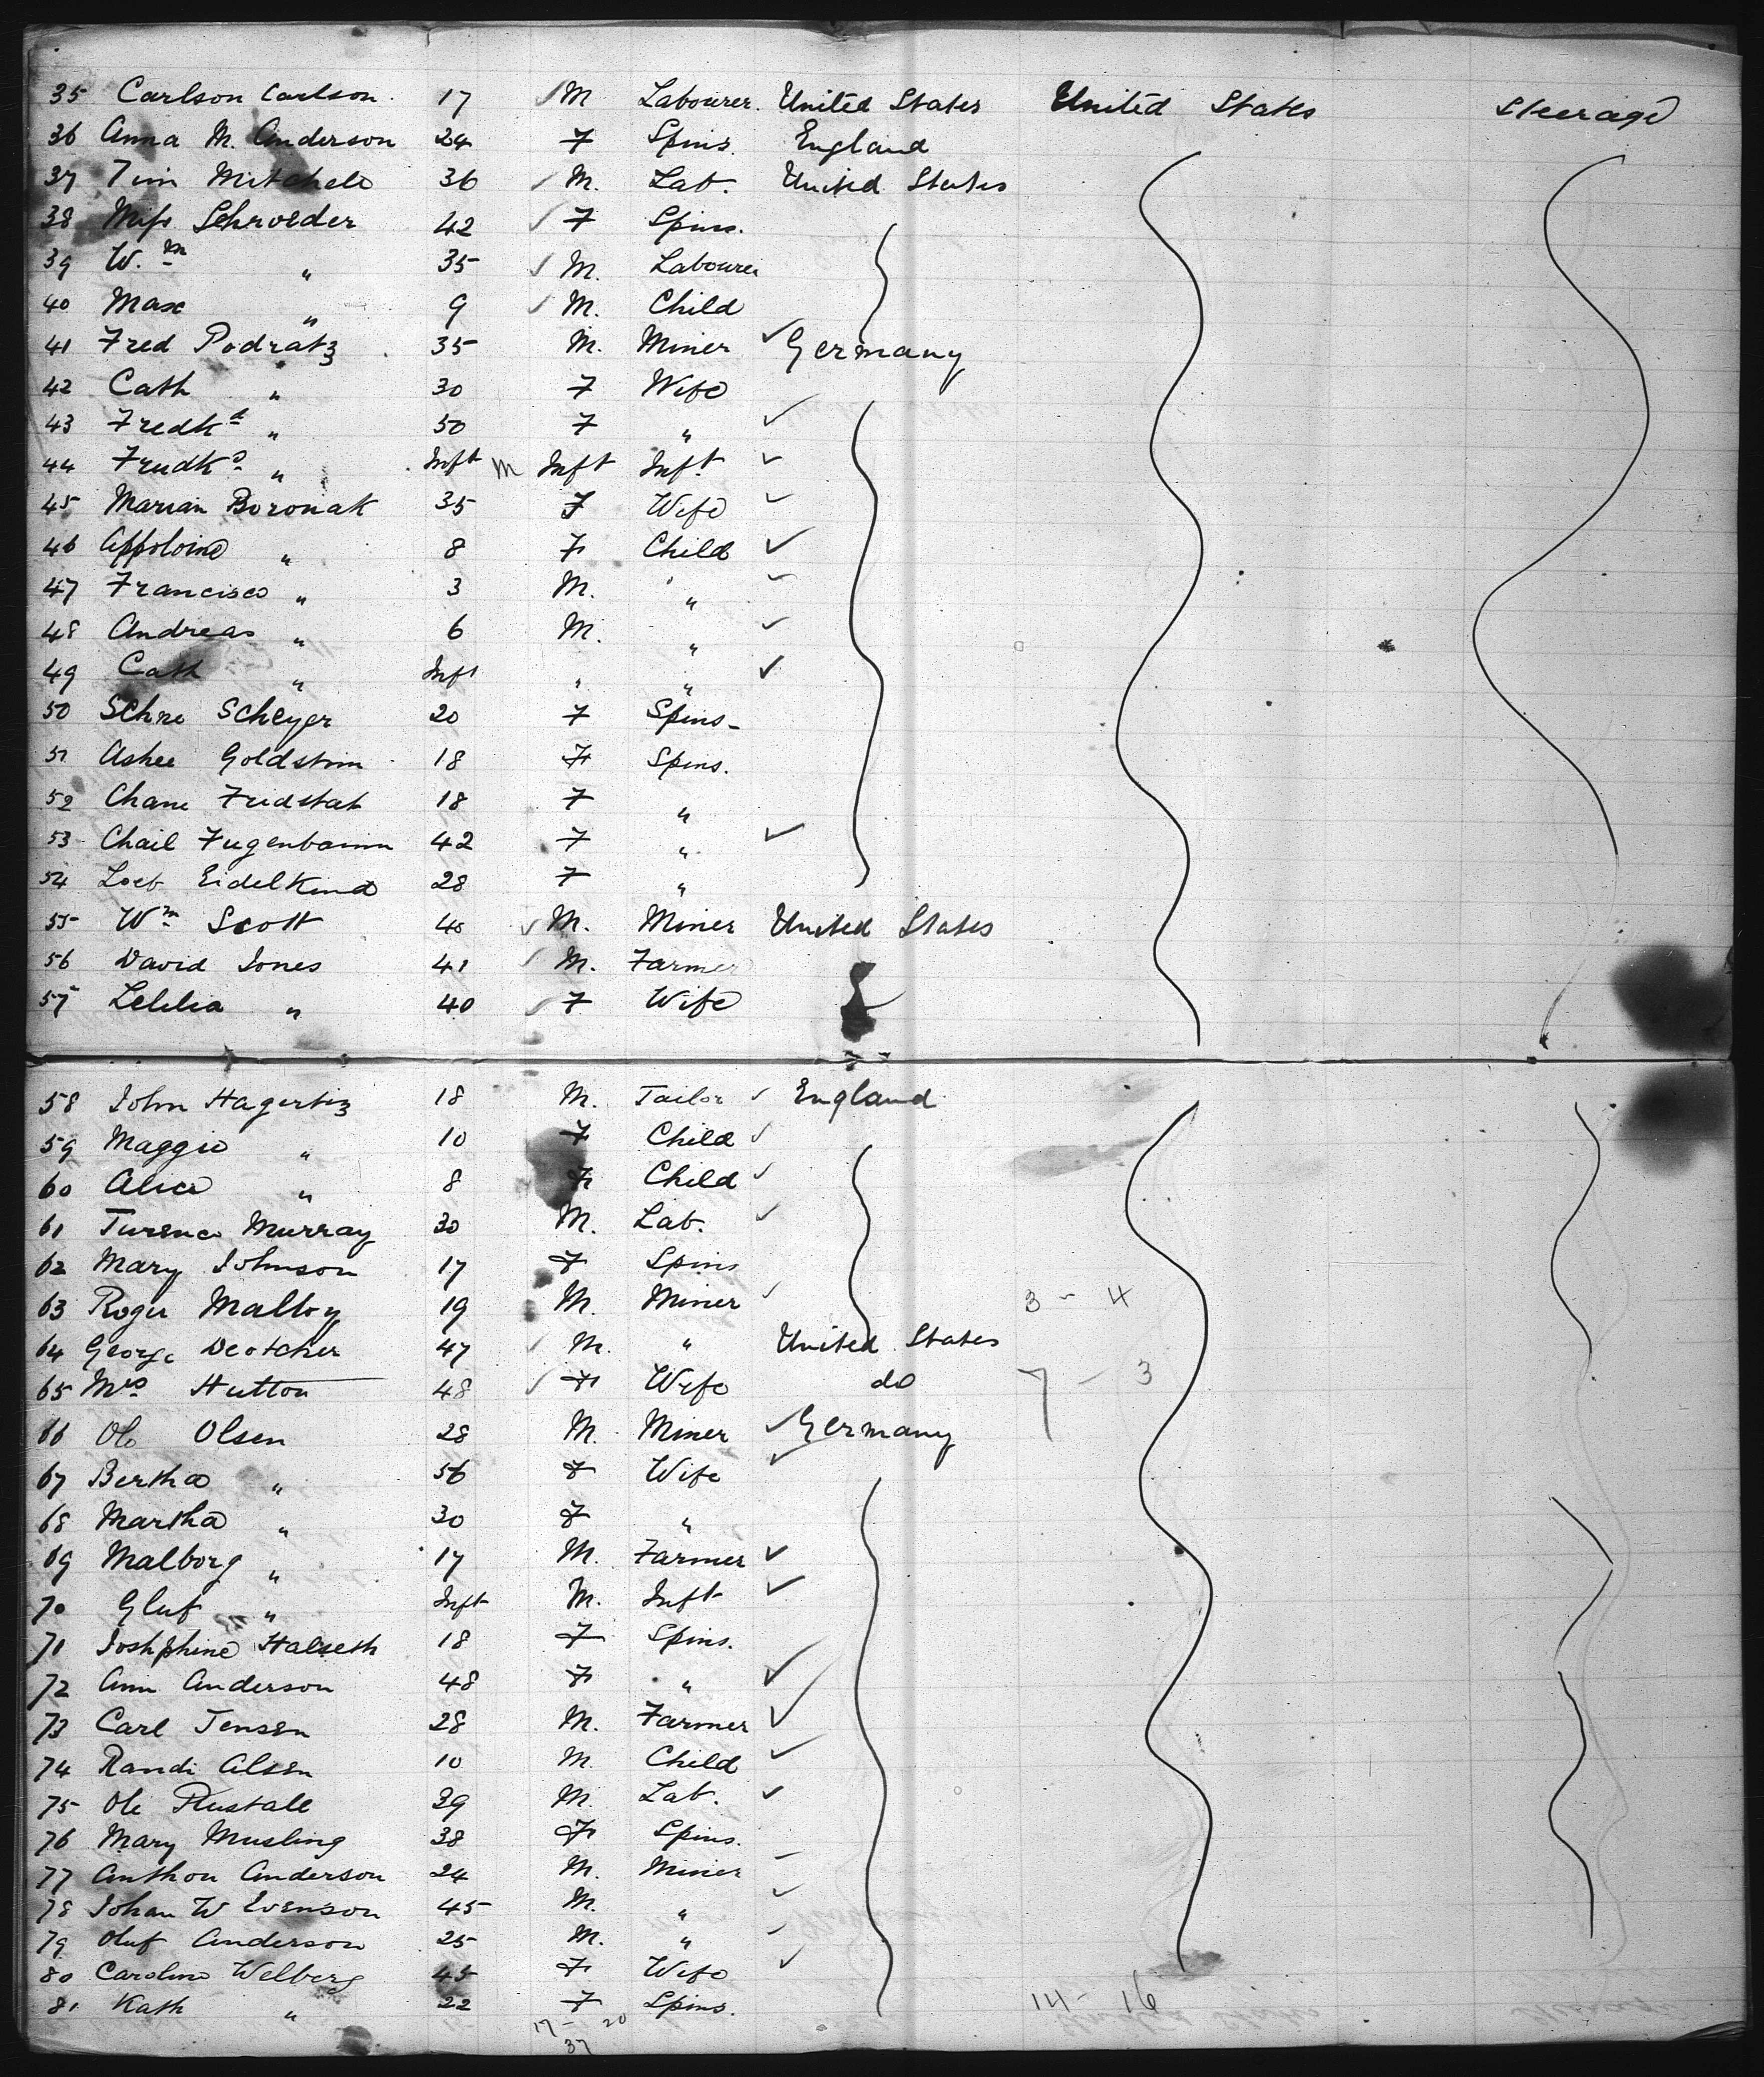 35 Carlson Carlson. 17 ✓ M Labourer. United States United States Steerage
36 Anna M. Anderson 24 F Spins. England
37 Tim Mitchell 36 ✓ M. Lab. United States
38 Miss Schroeder 42 ✓ F Spins.
39 Wm " 35 ✓ M. Labourer
40 Max " 9 ✓ M. Child
41 Fred Podratz 35 M. Miner ✓ Germany
42 Cath " 30 F Wife
43 Fredka " 50 F " ✓
44 " Inft M Inft Inft ✓
45 Marian Boronak 35 F Wife ✓
46 " 8 F Child ✓
47 Francisco " 3 M. " ✓
48 Andreas " 6 M. " ✓
49 Cath " Inft " " ✓
50 Scheyer 20 F Spins-
51 Goldstim 18 F Spins.
52 Chane 18 F "
53 Chail 42 F " ✓
54 Loeb Eidelkind 28 F "
55 Wm Scott ✓ M. Miner United States
56 David Jones 41 ✓ M. Farmer
57 " 40 ✓ F Wife
58 John 18 M. Tailor ✓ England
59 Maggie " 10 F Child ✓
60 Alice " 8 F Child ✓
61 Murray 30 M. Lab. ✓
62 Mary Johnson 17 F Spins
63 Roger Malloy 19 M. Miner ✓ 3 - 4
64 George Deotcher 47 ✓ M. " United States
65 Mrs Hutton 48 ✓ F Wife do 7 - 3
66 Ole Olsen 28 M. Miner ✓ Germany
67 Bertha " 56 F Wife ✓
68 Martha " 30 F "
69 Malborg " 17 M. Farmer ✓
70 " Inft M. Inft ✓
71 Joshphine Halseth 18 F Spins.
72 Ann Anderson 48 F " ✓
73 Carl Jensen 28 M. Farmer ✓
74 Randi Olsen 10 M. Child ✓
75 Ole 39 M. Lab. ✓
76 Mary Musling 38 F Spins.
77 Anthon Anderson 24 M. Miner
78 Johan W Evenson 45 M. " ✓
79 Oluf Anderson 25 M. "
80 Caroline Welberg 45 F Wife ✓
81 Kath " 22 F Spins. 14 - 16
17 - 20
37